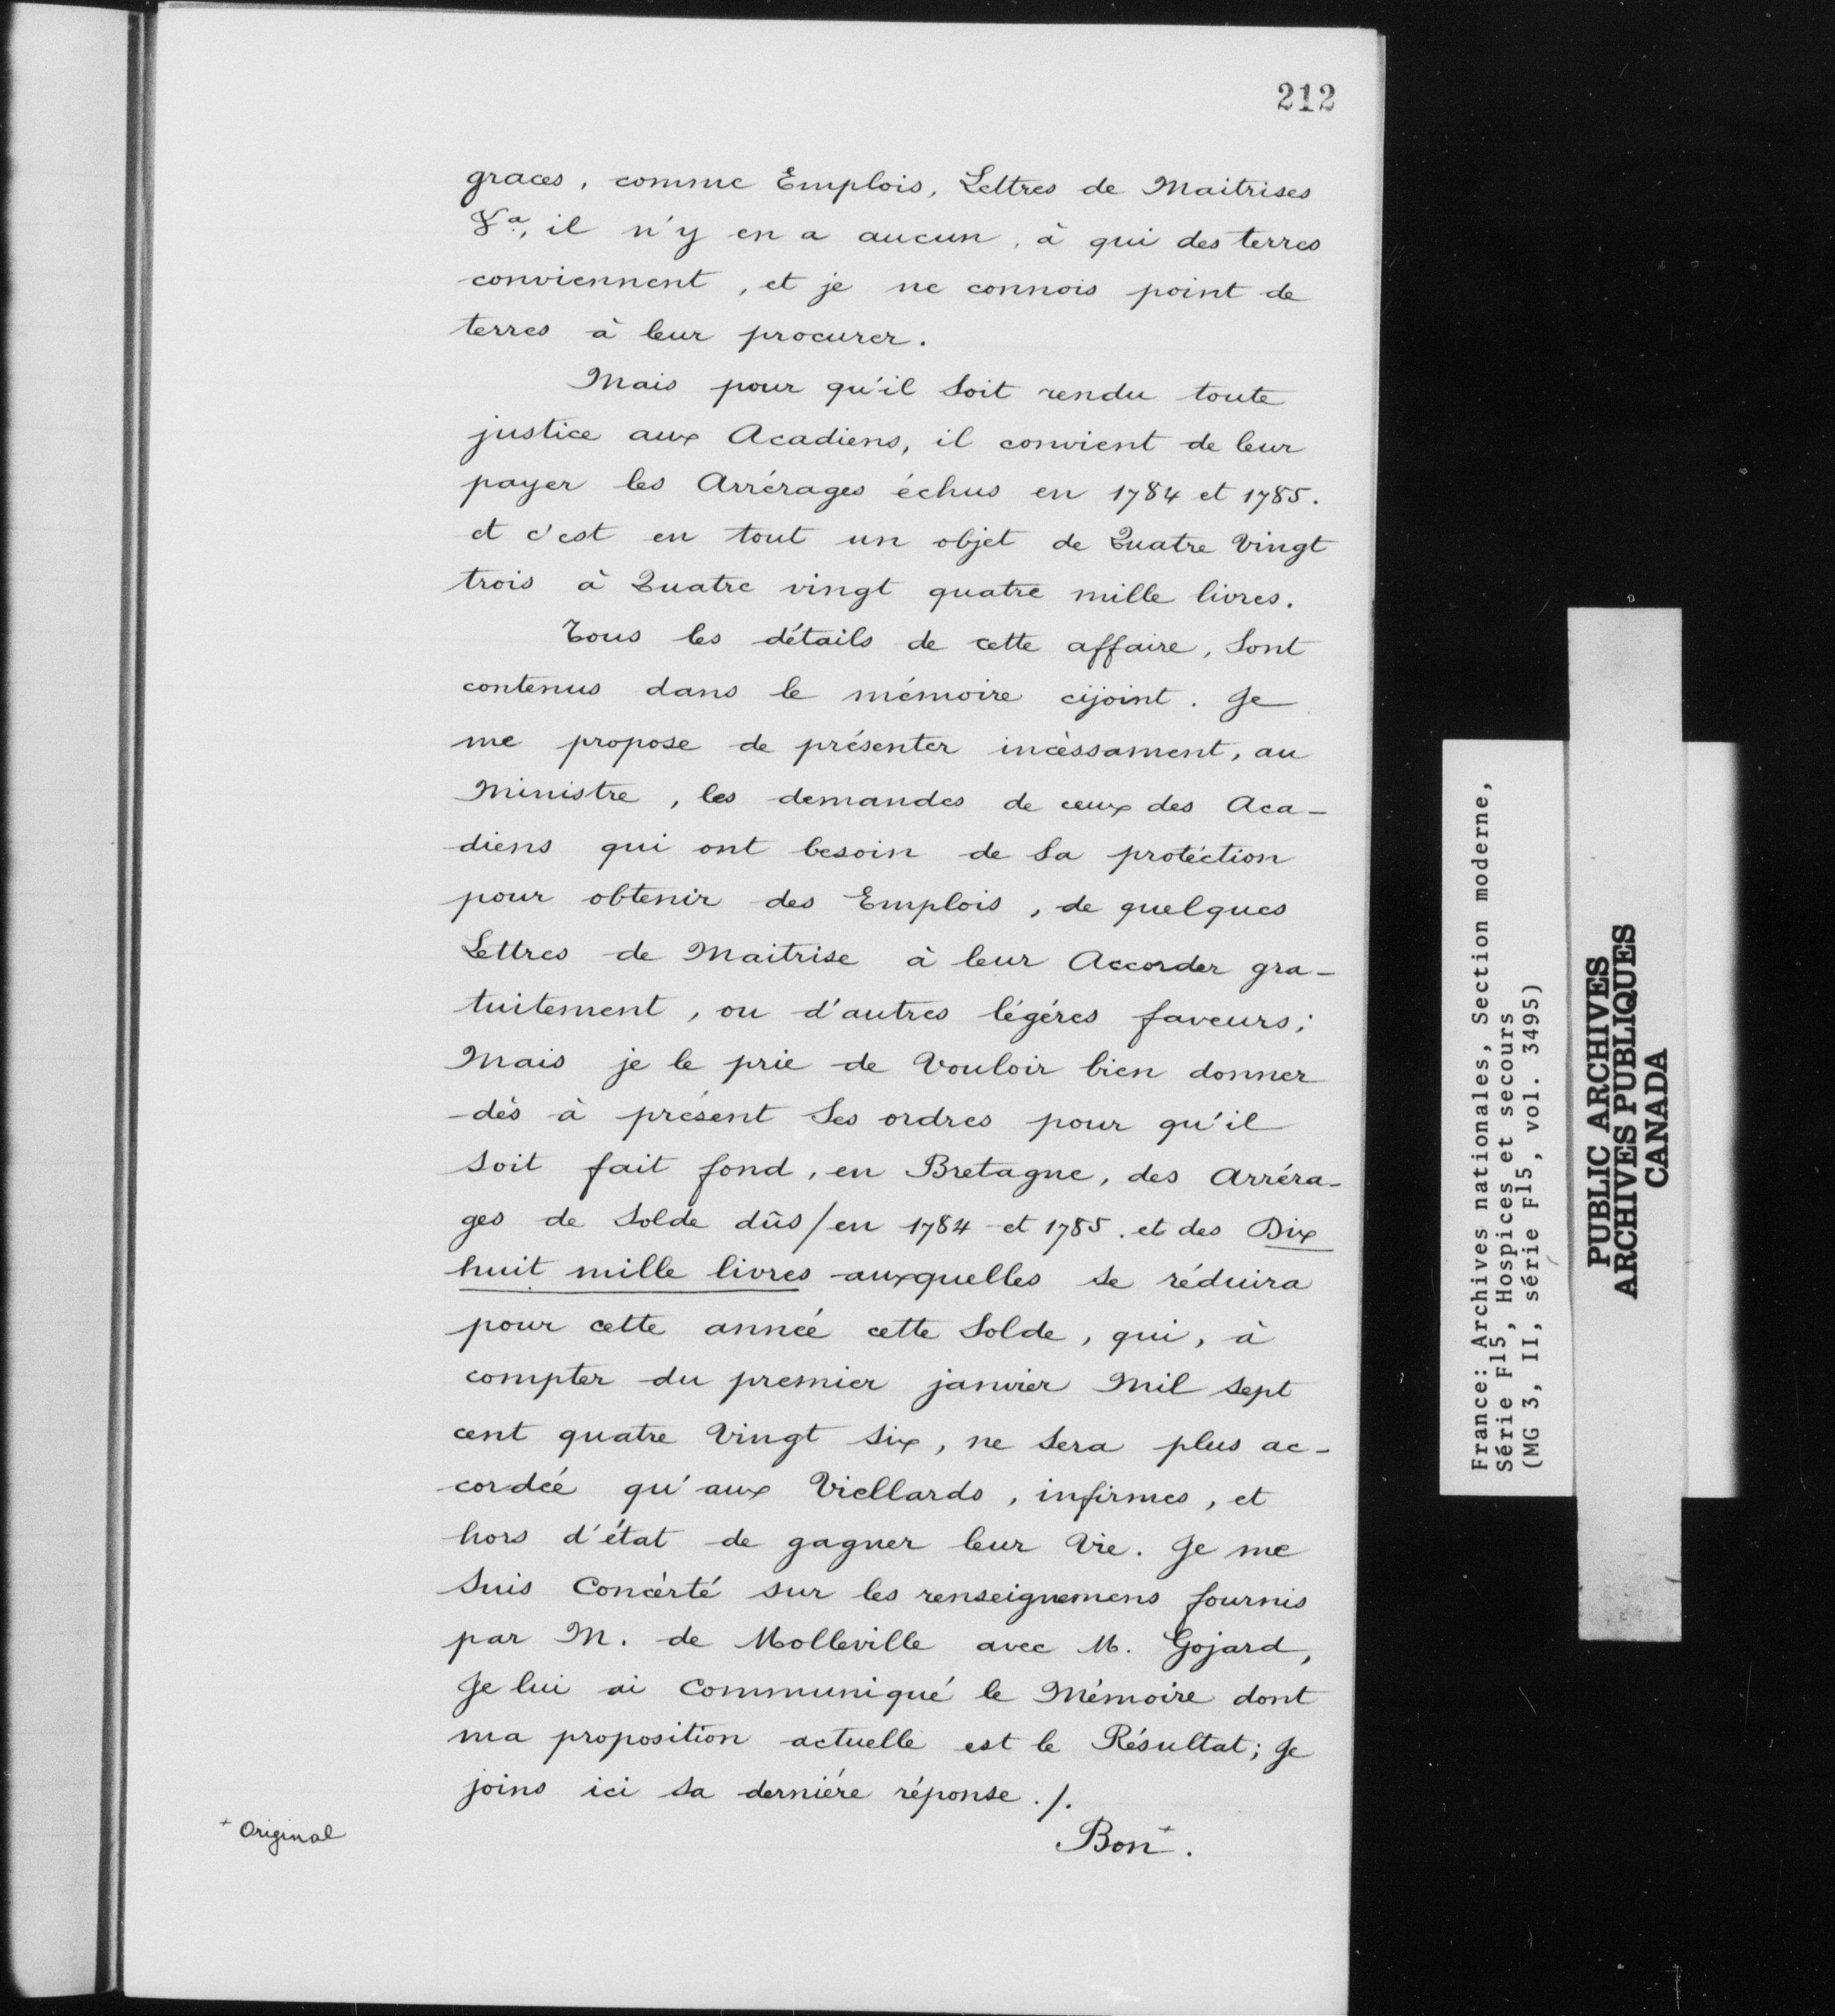 212
graces, comme Emplois, Lettres de Maitrises
&a, il n'y en a aucun, à qui des terres
conviennent, et je ne connois point de
terres à leur procurer.
Mais pour qu'il soit rendu toute
justice aux Acadiens, il convient de leur
payer les Arrérages échus en 1784 et 1785.
et c'est en tout un objet de Quatre Vingt
trois à Quatre vingt quatre mille livres.
Tous les détails de cette affaire, sont
contenus dans le mémoire cijoint. Je
me propose de présenter incèssament, au
Ministre, les demandes de ceux des Aca-
diens qui ont besoin de sa protéction
pour obtenir des Emplois, de quelques
Lettres de Maitrise à leur Accorder gra-
tuitement, ou d'autres légéres faveurs;
Mais je le prie de Vouloir bien donner
dès à présent ses ordres pour qu'il
soit fait fond, en Bretagne, des Arréra-
ges de solde dûs/en 1784 et 1785. et des Dix
huit mille livres auxquelles se réduira
pour cette année cette solde, qui, à
compter du premier janvier Mil sept
cent quatre Vingt six, ne sera plus ac-
cordée qu'aux Viellards, infirmes, et
hors d'état de gagner leur Vie. Je me
suis Concèrté sur les renseignemens fournis
par M. de Molleville avec M. Gojard,
Je lui ai Communiqué le Mémoire dont
ma proposition actuelle est le Résultat; Je
joins ici sa derniére réponse ./.
Bon+.
+ Original
France: Archives nationales, Section moderne,
Série F15, Hospices et secours
(MG 3, II, série F15, vol. 3495)
PUBLIC ARCHIVES
ARCHIVES PUBLIQUES
CANADA